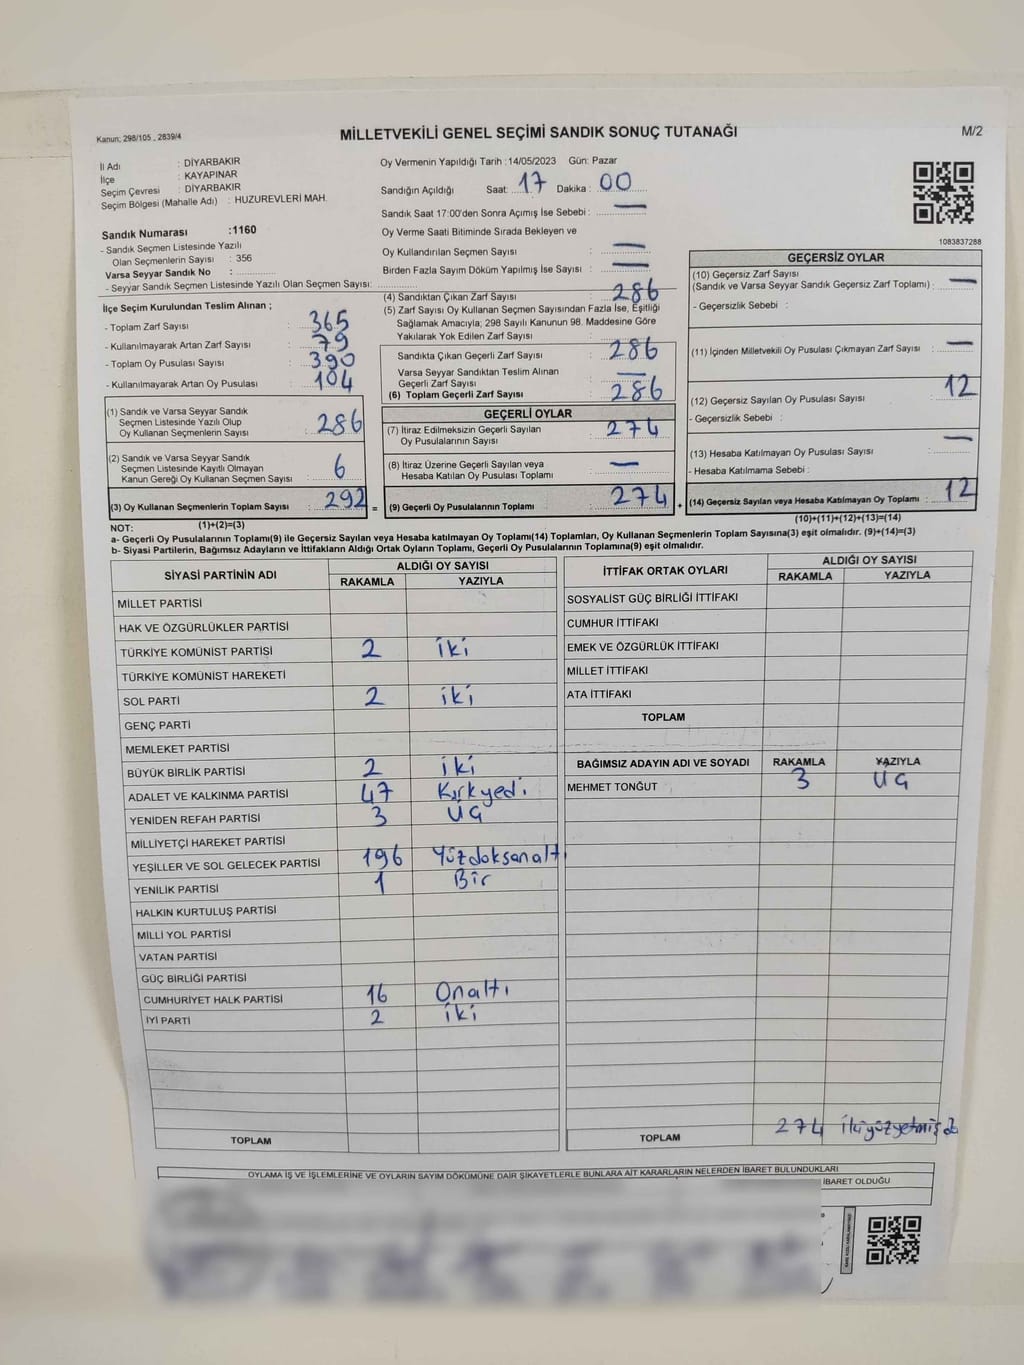 Kanun; 298/105 , 2839/4
MİLLETVEKİLİ GENEL SEÇİMİ SANDIK SONUÇ TUTANAĞI
M/2
İl Adı : DİYARBAKIR
İlçe : KAYAPINAR
Seçim Çevresi : DİYARBAKIR
Seçim Bölgesi (Mahalle Adı) : HUZUREVLERİ MAH.
Sandık Numarası :1160
- Sandık Seçmen Listesinde Yazılı
Olan Seçmenlerin Sayısı : 356
Varsa Seyyar Sandık No :
- Seyyar Sandık Seçmen Listesinde Yazılı Olan Seçmen Sayısı:
Oy Vermenin Yapıldığı Tarih :14/05/2023 Gün: Pazar
Sandığın Açıldığı Saat: 17 Dakika : 00
Sandık Saat 17:00'den Sonra Açımış İse Sebebi : —
Oy Verme Saati Bitiminde Sırada Bekleyen ve
Oy Kullandırılan Seçmen Sayısı : —
Birden Fazla Sayım Döküm Yapılmış İse Sayısı : —
1083837288
İlçe Seçim Kurulundan Teslim Alınan ;
- Toplam Zarf Sayısı : 365
- Kullanılmayarak Artan Zarf Sayısı : 79
- Toplam Oy Pusulası Sayısı : 390
- Kullanılmayarak Artan Oy Pusulası : 104
(1) Sandık ve Varsa Seyyar Sandık
Seçmen Listesinde Yazılı Olup
Oy Kullanan Seçmenlerin Sayısı : 286
(2) Sandık ve Varsa Seyyar Sandık
Seçmen Listesinde Kayıtlı Olmayan
Kanun Gereği Oy Kullanan Seçmen Sayısı : 6
(3) Oy Kullanan Seçmenlerin Toplam Sayısı : 292 =
(1)+(2)=(3)
(4) Sandıktan Çıkan Zarf Sayısı : 286
(5) Zarf Sayısı Oy Kullanan Seçmen Sayısından Fazla İse, Eşitliği
Sağlamak Amacıyla; 298 Sayılı Kanunun 98. Maddesine Göre
Yakılarak Yok Edilen Zarf Sayısı :
Sandıkta Çıkan Geçerli Zarf Sayısı : 286
Varsa Seyyar Sandıktan Teslim Alınan
Geçerli Zarf Sayısı : —
(6) Toplam Geçerli Zarf Sayısı : 286
GEÇERLİ OYLAR
(7) İtiraz Edilmeksizin Geçerli Sayılan
Oy Pusulalarının Sayısı : 274
(8) İtiraz Üzerine Geçerli Sayılan veya
Hesaba Katılan Oy Pusulası Toplamı : —
(9) Geçerli Oy Pusulalarının Toplamı : 274 +
GEÇERSİZ OYLAR
(10) Geçersiz Zarf Sayısı
(Sandık ve Varsa Seyyar Sandık Geçersiz Zarf Toplamı) : —
- Geçersizlik Sebebi :
(11) İçinden Milletvekili Oy Pusulası Çıkmayan Zarf Sayısı : —
(12) Geçersiz Sayılan Oy Pusulası Sayısı : 12
- Geçersizlik Sebebi :
(13) Hesaba Katılmayan Oy Pusulası Sayısı : —
- Hesaba Katılmama Sebebi :
(14) Geçersiz Sayılan veya Hesaba Katılmayan Oy Toplamı : 12
(10)+(11)+(12)+(13)=(14)
NOT:
a- Geçerli Oy Pusulalarının Toplamı(9) ile Geçersiz Sayılan veya Hesaba katılmayan Oy Toplamı(14) Toplamları, Oy Kullanan Seçmenlerin Toplam Sayısına(3) eşit olmalıdır. (9)+(14)=(3)
b- Siyasi Partilerin, Bağımsız Adayların ve İttifakların Aldığı Ortak Oyların Toplamı, Geçerli Oy Pusulalarının Toplamına(9) eşit olmalıdır.
SİYASİ PARTİNİN ADI ALDIĞI OY SAYISI
RAKAMLA YAZIYLA
MİLLET PARTİSİ
HAK VE ÖZGÜRLÜKLER PARTİSİ
TÜRKİYE KOMÜNİST PARTİSİ 2 iki
TÜRKİYE KOMÜNİST HAREKETİ
SOL PARTİ 2 iki
GENÇ PARTİ
MEMLEKET PARTİSİ
BÜYÜK BİRLİK PARTİSİ 2 iki
ADALET VE KALKINMA PARTİSİ 47 Kırkyedi
YENİDEN REFAH PARTİSİ 3 Üç
MİLLİYETÇİ HAREKET PARTİSİ
YEŞİLLER VE SOL GELECEK PARTİSİ 196 Yüzdoksanaltı
YENİLİK PARTİSİ 1 Bir
HALKIN KURTULUŞ PARTİSİ
MİLLİ YOL PARTİSİ
VATAN PARTİSİ
GÜÇ BİRLİĞİ PARTİSİ
CUMHURİYET HALK PARTİSİ 16 Onaltı
İYİ PARTİ 2 iki
TOPLAM
İTTİFAK ORTAK OYLARI ALDIĞI OY SAYISI
RAKAMLA YAZIYLA
SOSYALİST GÜÇ BİRLİĞİ İTTİFAKI
CUMHUR İTTİFAKI
EMEK VE ÖZGÜRLÜK İTTİFAKI
MİLLET İTTİFAKI
ATA İTTİFAKI
TOPLAM
BAĞIMSIZ ADAYIN ADI VE SOYADI RAKAMLA YAZIYLA
MEHMET TONĞUT 3 Üç
TOPLAM 274 ikiyüzyetmiş
OYLAMA İŞ VE İŞLEMLERİNE VE OYLARIN SAYIM DÖKÜMÜNE DAİR ŞİKAYETLERLE BUNLARA AİT KARARLARIN NELERDEN İBARET BULUNDUKLARI
İBARET OLDUĞU